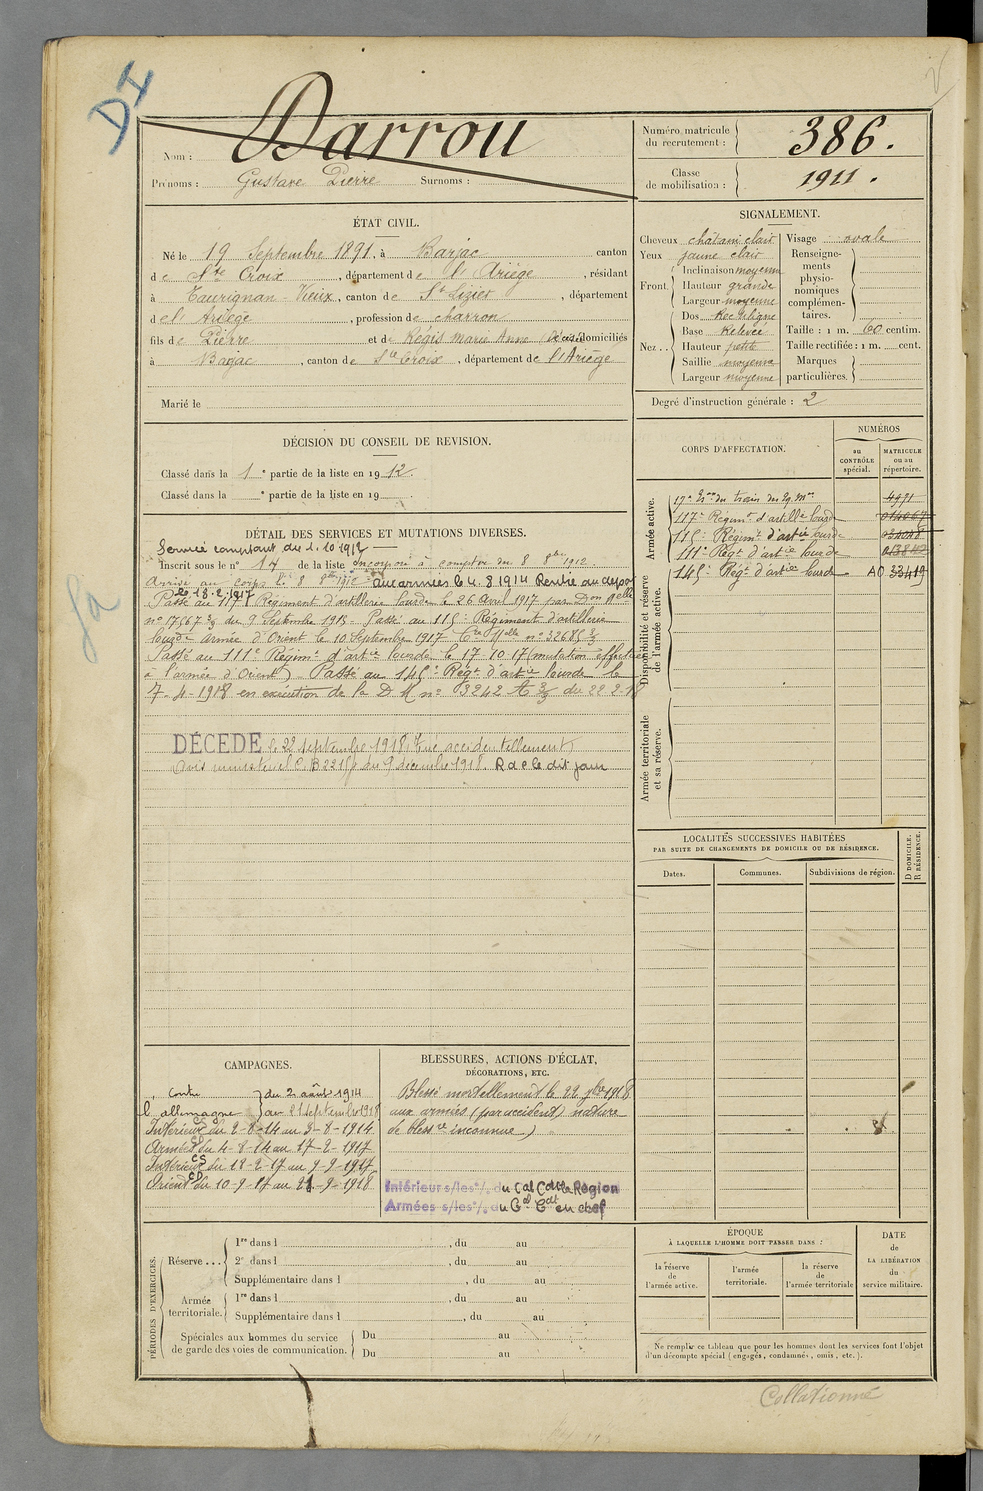 DI
Nom : Darrou
Prénoms : Gustave Pierre Surnoms :
Numéro matricule
du recrutement : 386.
Classe
de mobilisation : 1911.
ÉTAT CIVIL.
Né le 19 Septembre 1891, à Barjac canton
de Ste Croix, département de l'Ariège, résidant
à Taurignan-Vieux, canton de St Lizier, département
de l'Ariège, profession de charron
fils de Pierre et de Régis Marie Anne (Décisé) domiciliés
à Bagac, canton de Ste Croix, département de l'Ariège
Marié le
SIGNALEMENT.
Cheveux châtain clair
Yeux jaune clair
Front
Inclinaison moyenne
Hauteur grande
Largeur moyenne
Nez
Dos Rectiligne
Base Relevée
Hauteur petite
Saillie moyenne
Largeur moyenne
Visage ovale
Renseigne-
ments
physio-
nomiques
complémen-
taires.
Taille : 1 m. 60 centim.
Taille rectifiée : 1 m. cent.
Marques
particulières.
Degré d'instruction générale : 2
DÉCISION DU CONSEIL DE REVISION.
Classé dans la 1e partie de la liste en 1912.
Classé dans la e partie de la liste en 19 .
CORPS D'AFFECTATION.
NUMÉROS
au
CONTRÔLE
spécial.
MATRICULE
ou au
répertoire.
Armée active.
17e Eon du train des Eq. Mres 4991
117e Régimt d'artillie lourde 014067
115e Régimt d'artie lourde 034048
111e Régt d'artie lourde
Disponibilité et réserve
de l'armée active.
145e Régt d'artie lourde AO 33419
Armée territoriale
et sa réserve.
DÉTAIL DES SERVICES ET MUTATIONS DIVERSES.
Service comptant du 1.10 1912
Inscrit sous le n° 14 de la liste Incorporé à compter du 8 8bre 1912.
Arrivé au corps le 8 8bre 1912 aux armées le 4.8.1914 Rentré au dépôt
le 18.2.1917
Passé au 117e Régiment d'artillerie lourde le 26 Avril 1917 par Don Melle
n° 17567 3/3 du 9 Septembre 1915 Passé au 115e Régiment d'artillerie
lourde Armée d'Orient le 10 Septembre 1917 Cre Melle n° 32685 3/3
Passé au 111e Régimt d'artie lourde le 17-10-17 (mutation effectuée
à l'armée d'Orient) Passé au 145e Régt d'artie lourde le
7-4-1918 en exécution de la D.M n° 03242 A 3/3 du 22 2 18
DÉCÉDÉ le 22 septembre 1918, (tué accidentellement)
Avis ministériel C.B 2215p du 9 décembre 1918. R d c le dit jour
LOCALITÉS SUCCESSIVES HABITÉES
PAR SUITE DE CHANGEMENTS DE DOMICILE OU DE RÉSIDENCE.
Dates.
Communes.
Subdivisions de région.
D DOMICILE.
R RÉSIDENCE.
CAMPAGNES.
Contre du 2 août 1914
l'allemagne au 21 septembre 1918
Intérieur CS du 2-8-14 au 3-8-1914.
Armées CD du 4-8-14 au 17-2-1917
Intérieur CS du 18-2-17 au 9-9-1917
Orient CD du 10-9-17 au 21-9-1918
BLESSURES, ACTIONS D'ÉCLAT,
DÉCORATIONS, ETC.
Blessé mortellement le 22 7bre 1918
aux armées (par accident) nature
de blessre inconnue)
Intérieur s/les o/. du Gal Cdt la Région
Armées s/les o/. du Gal Cdt en chef
PÉRIODES D'EXERCICES.
Réserve...
1re dans l , du au
2e dans l , du au
Supplémentaire dans l , du au
Armée
territoriale.
1re dans l , du au
Supplémentaire dans l , du au
Spéciales aux hommes du service
de garde des voies de communication.
Du au
Du au
ÉPOQUE
À LAQUELLE L'HOMME DOIT PASSER DANS :
la réserve
de
l'armée active.
l'armée
territoriale.
la réserve
de
l'armée territoriale
DATE
de
LA LIBÉRATION
du
service militaire.
Ne remplir ce tableau que pour les hommes dont les services font l'objet
d'un décompte spécial (engagés, condamnés, omis, etc.).
Collationné